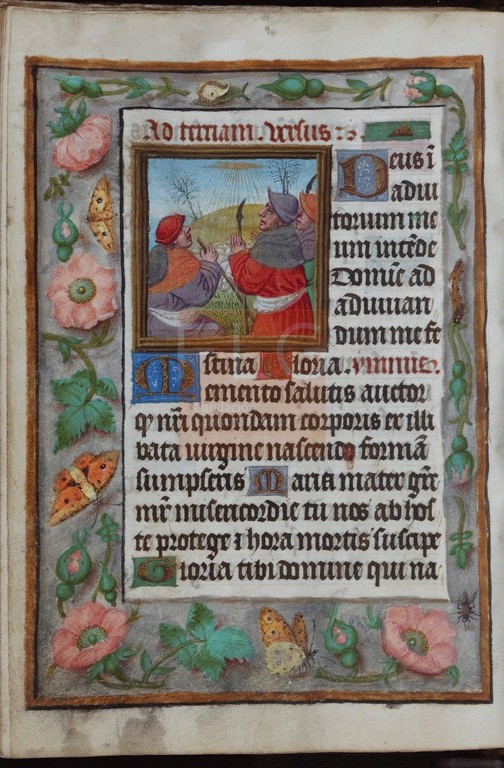 Ad terciam. versus
Deus i
adiu
torium me
um intēde
Domīe ad
adiuuan
dum me fe
stina Gloria. ymnus.
Memento salutis auctor
qͥ nrī quondam corporis ex illi
bata uirgine nascendo formā
sumpseris Maria mater grē
mr̄ misericordie tu nos ab hos
te protege ⁊ hora mortis suscipe
Gloria tibi domine qui na